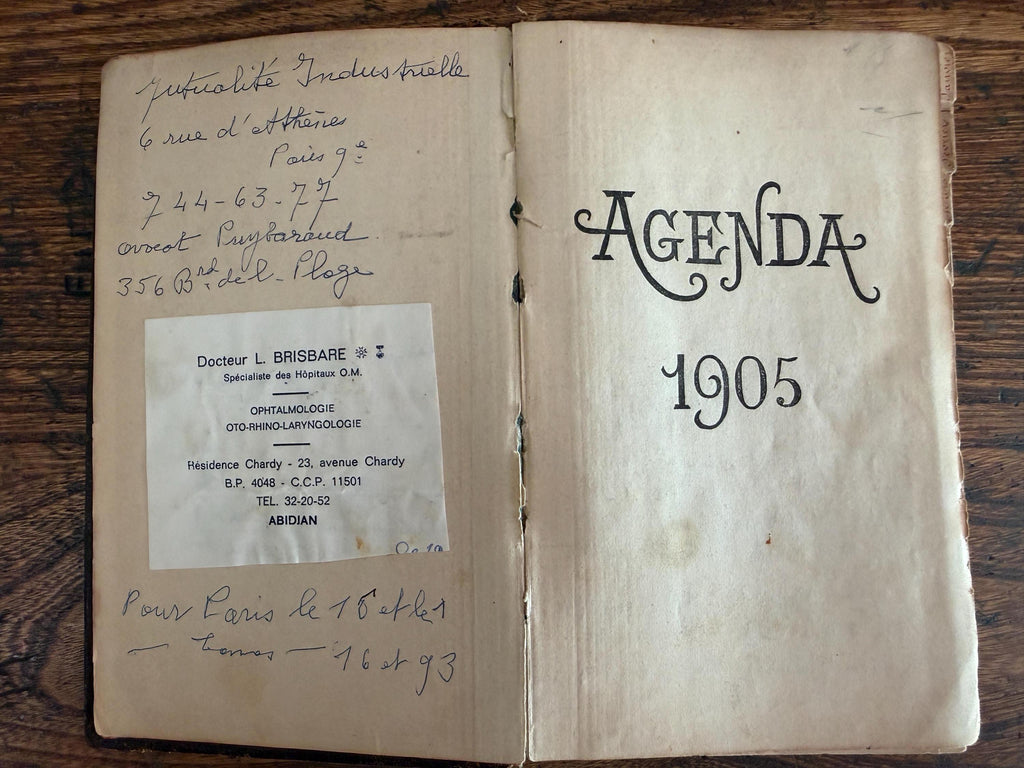 Mutualité Industrielle
6 rue d'Athènes
Paris 9e
744-63-77
avocat Puybaraud
356 Brd de l- Plage
Docteur L. BRISBARE
Spécialiste des Hôpitaux O.M.
OPHTALMOLOGIE
OTO-RHINO-LARYNGOLOGIE
Résidence Chardy - 23, avenue Chardy
B.P. 4048 - C.C.P. 11501
TEL. 32-20-52
ABIDJAN
Pour Paris le 16 et le 1
16 et 93
AGENDA
1905
Janvier